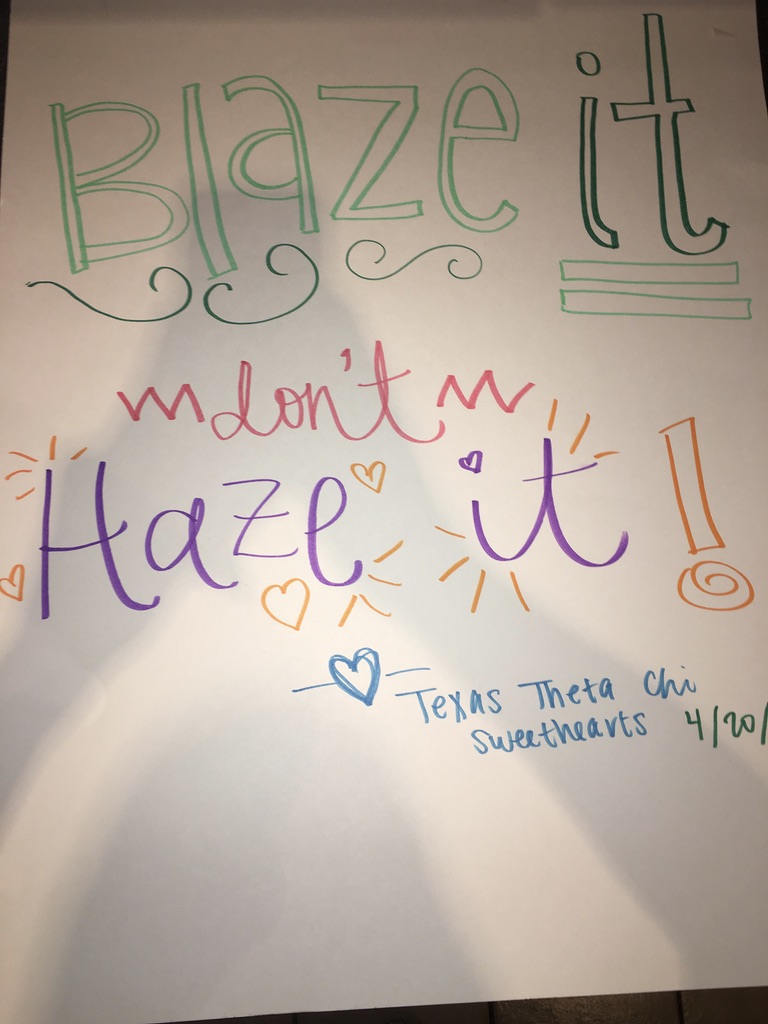 Blaze it
don't
Haze it!
Texas Theta Chi
sweethearts 4/20/